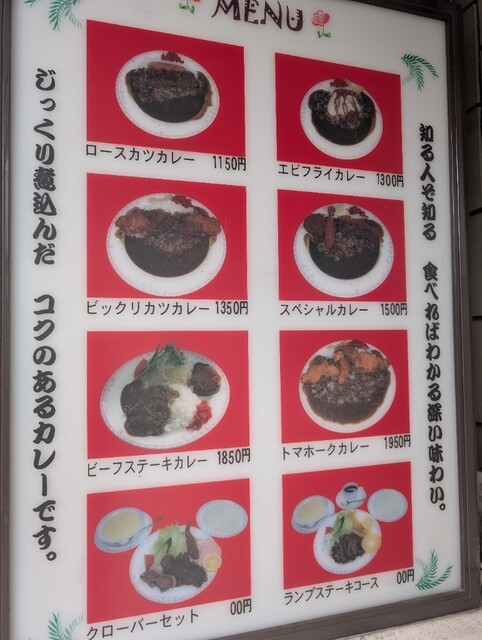 MENU
じっくり煮込んだ　コクのあるカレーです。
知る人ぞ知る　食べればわかる深い味わい。
ロースカツカレー 1150円
エビフライカレー 1300円
ビックリカツカレー 1350円
スペシャルカレー 1500円
ビーフステーキカレー 1850円
トマホークカレー 1950円
クローバーセット 00円
ランプステーキコース 00円